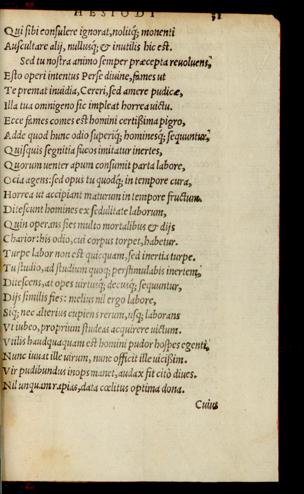 HESIODI 31
Qui sibi consulere ignorat, noluitq́; monenti
Auscultare alij, nullusq́; & inutilis hic est.
Sed tu nostra animo semper præcepta reuoluens,
Esto operi intentus Perse diuine, fames ut
Te premat inuidia, Cereri, sed amere pudicæ,
Illa tua omnigeno sic impleat horrea uictu.
Ecce fames comes est homini certißima pigro,
Adde quod hunc odio superiq́; hominesq́; sequuntur,
Quisquis segnitia fucos imitatur inertes,
Quorum uenter apum consumit parta labore,
Ocia agens: sed opus tu quodq́; in tempore cura,
Horrea ut accipiant maturum in tempore fructum.
Ditescunt homines ex sedulitate laborum,
Quin operans fies multo mortalibus & dijs
Charior: his odio, cui corpus torpet, habetur.
Turpe labor non est quicquam, sed inertia turpe.
Tu studio, ad studium quoq; perstimulabis inertem,
Ditescens, at opes uirtusq́; decusq́; sequuntur,
Dijs similis fies: melius nil ergo labore,
Siq́; nec alterius cupiens rerum, usq́; laborans
Vt iubeo, proprium studeas acquirere uictum.
Vtilis haudquaquam est homini pudor hospes egenti,
Nunc iuuat ille uirum, nunc officit ille uicißim.
Vir pudibundus inops manet, audax fit citò diues.
Nil unquam rapias, data cœlitus optima dona.
Cuius